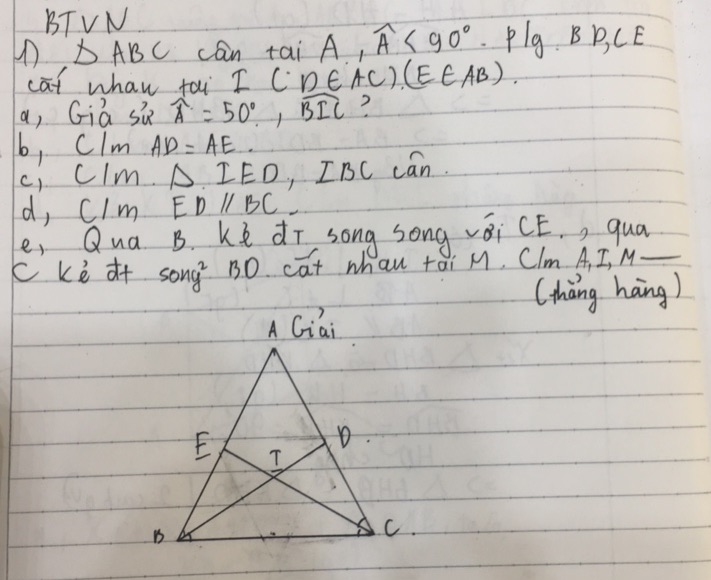 BTVN
1) Δ ABC cân tại A, Â < 90°. p/g BD, CE
cắt nhau tại I (D ∈ AC) (E ∈ AB).
a, Giả sử Â = 50°, BIC?
b, C/m AD = AE.
c, C/m Δ IED, IBC cân.
d, C/m ED // BC.
e, Qua B kẻ đT song song với CE, qua
C kẻ đt song² BD cắt nhau tại M. C/m A, I, M —
(thẳng hàng)
Giải
A
E
D
I
B
C